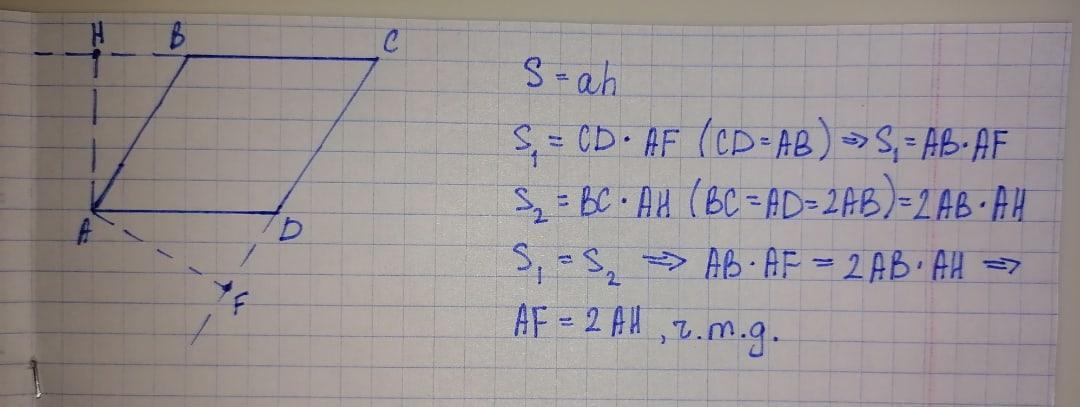 H B C
A D
F
S = ah
S₁ = CD · AF (CD = AB) ⇒ S₁ = AB · AF
S₂ = BC · AH (BC = AD = 2AB) = 2AB · AH
S₁ = S₂ ⇒ AB · AF = 2AB · AH ⇒
AF = 2AH, ч.т.д.